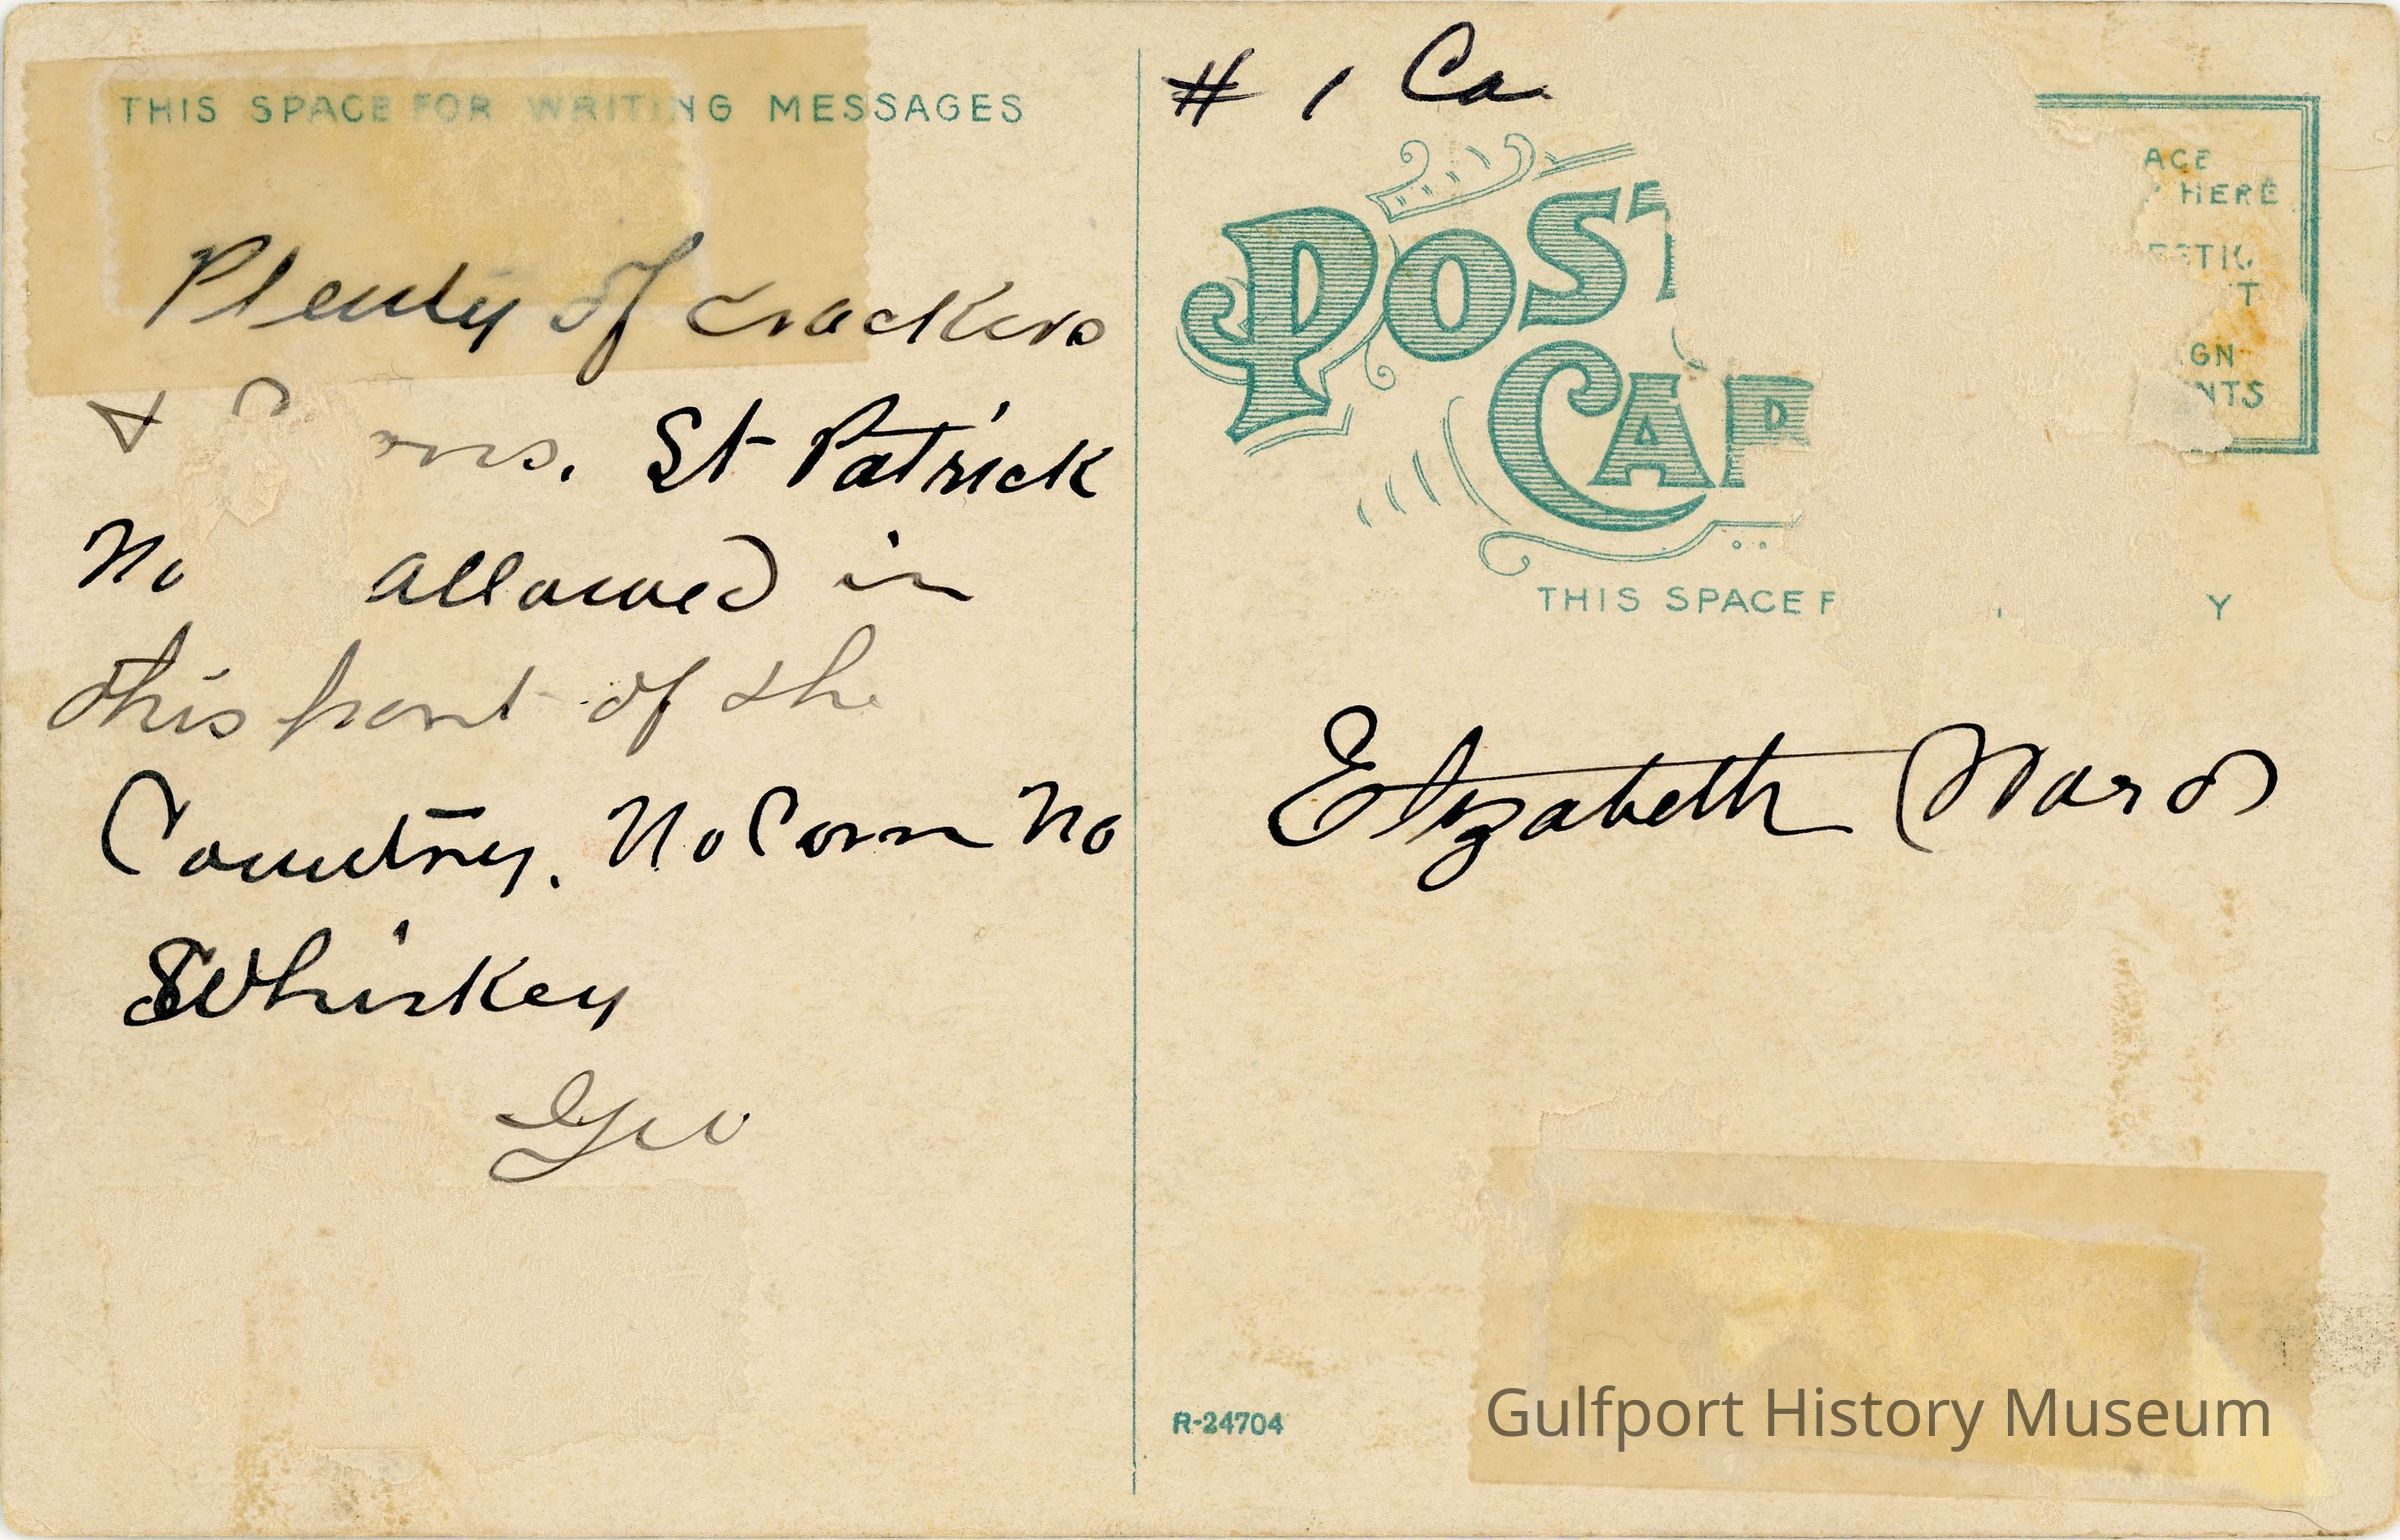 THIS SPACE FOR WRITING MESSAGES
Plenty of crackers
& St Patrick
No allowed in
this part of the
Country. No Corn No
Whiskey
Geo
# 1 Ca
POST
CAR
THIS SPACE F Y
ACE
HERE
T
GN
NTS
Elizabeth Ward
R-24704
Gulfport History Museum